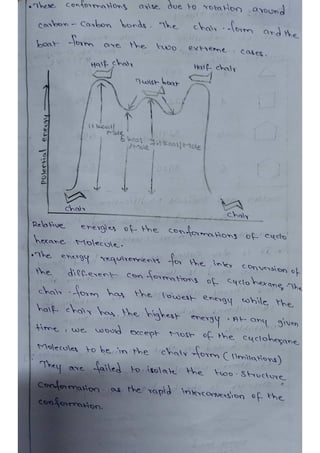 • These conformations arise due to rotation around
carbon - carbon bonds. The chair - form and the
boat - form are the two extreme cases.
Half chair
Half chair
Twist boat
Potential energy
11 kcal/
Mole
6 kcal
/Mole
kcal/Mole
chair
chair
Relative energies of the conformations of cyclo
hexane Molecule.
• The energy requirements for the inter conversion of
the different con-formations of cyclohexane, The
chair - form has the lowest energy while, the
half chair has the highest energy. At any given
time, we would except Most of the cyclohexane
Molecules to be in the chair form (limitations)
They are failed to isolate the two structure
conformation as the rapid interconversion of the
conformation.